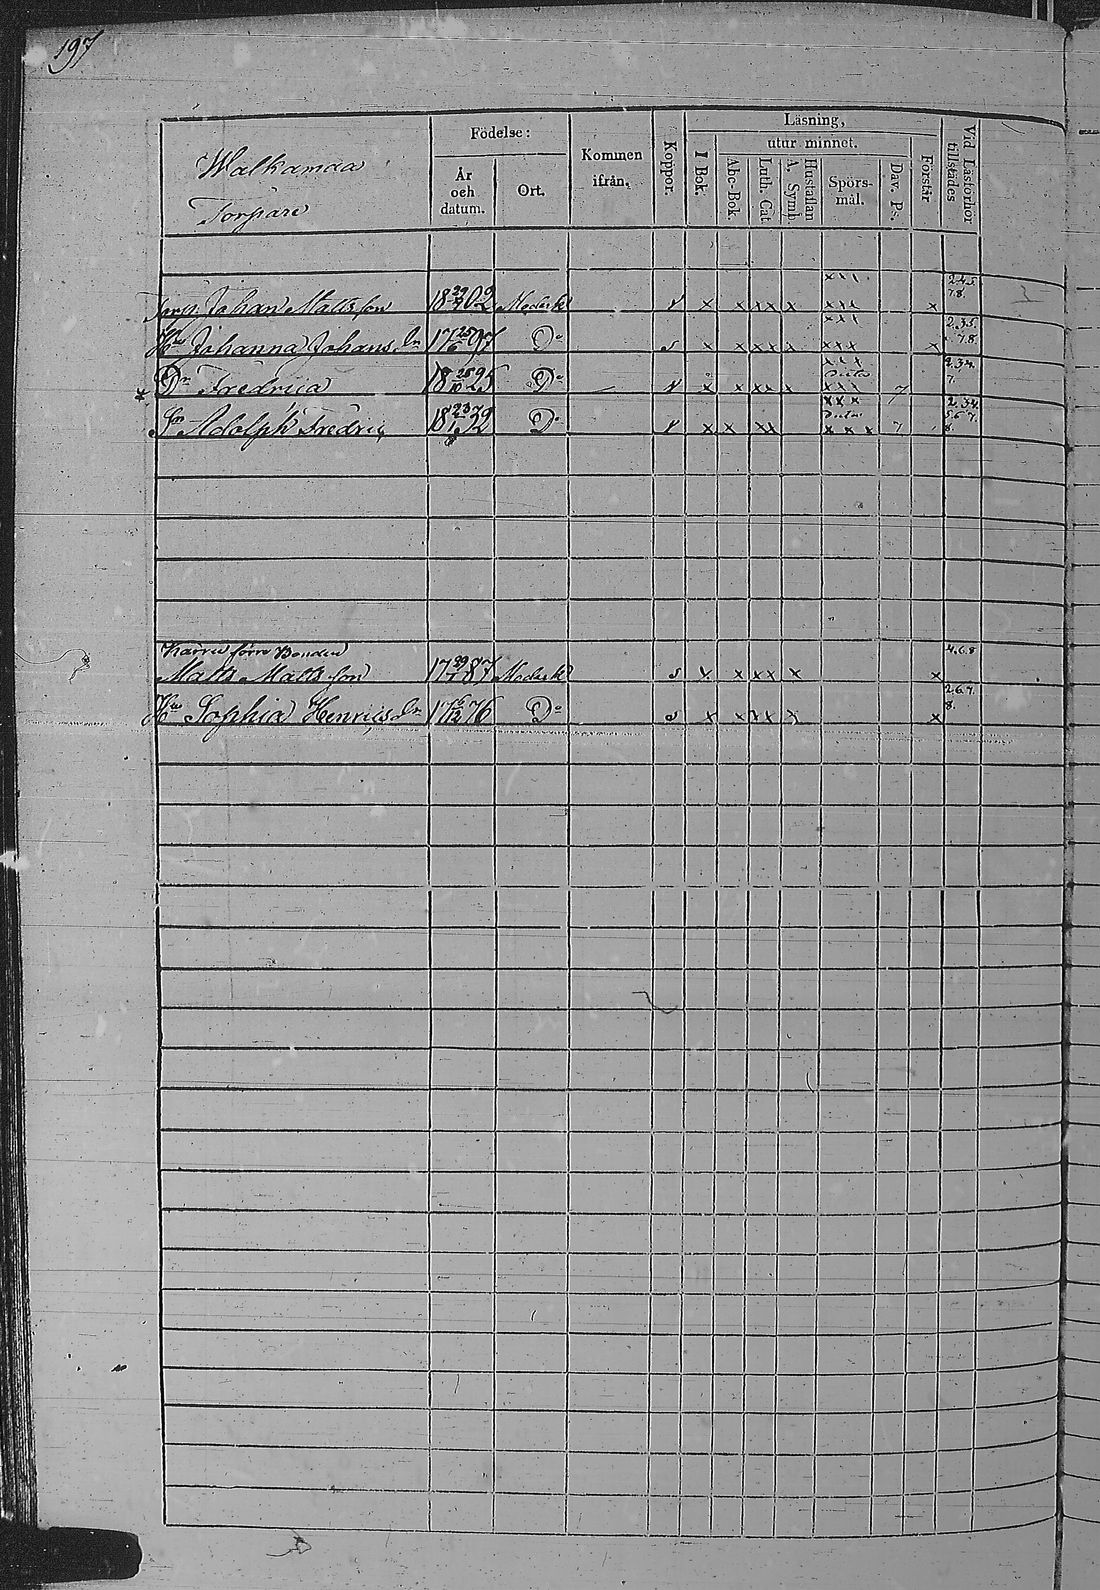 197
Walkamaa
Torpare
Födelse:
År och datum.
Ort.
Kommen ifrån.
Koppor.
Läsning,
I Bok.
utur minnet.
Abc-Bok.
Luth. Cat.
A. Symb.
Hustaflan
Spörsmål.
Dav. Ps.
Förstår
Vid Läsförhör tillstädes
Torp. Johan Matts son 18 29/4 02 Moderk v x x xxx x xxx xxx x 2.4.5. 7.8.
Hu Johanna Johans Dr 17 25/6 97 Do s x x xxx x xxx xxx x 2.3.5. 7.8.
Dr Fredrica 18 25/10 25 Do v x x xxx x xxx xxx 7 2.3.4. 7.
Sn Adolph Fredric 18 23/1 32 Do v x x xx xxx xxx 7 2.3.4. 5.6.7. 8.
Karru förre Bonden
Matts Matts son 17 29/1 87 Moderk s x x xxx x x 4.6.8
Hu Sophia Henrics Dr 17 6/12 76 Do s x x xxx x x 2.6.7. 8.